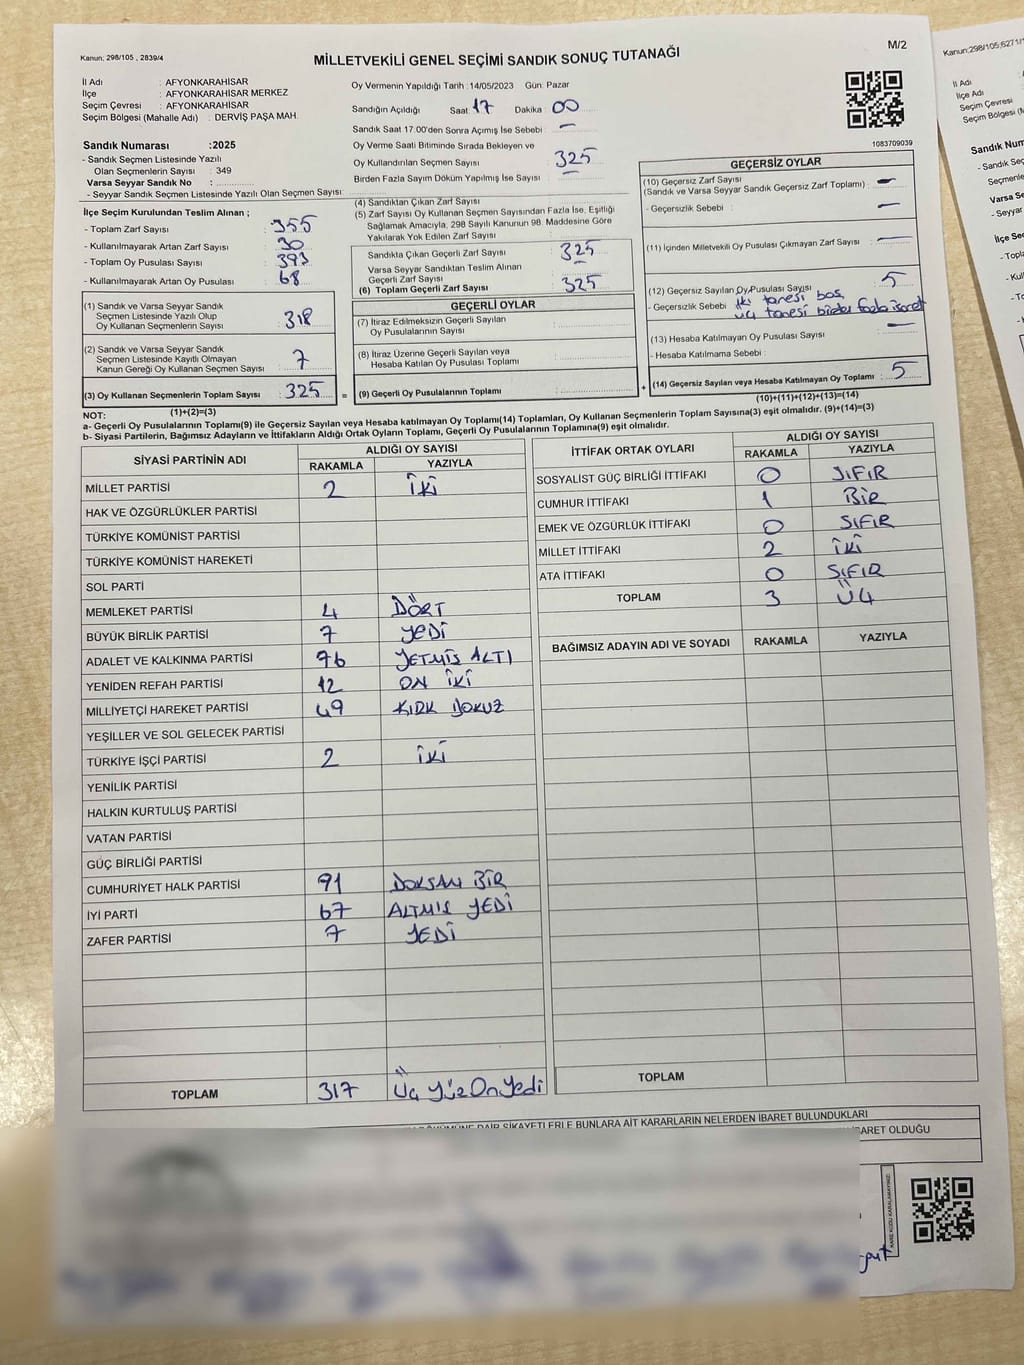 Kanun: 298/105 , 2839/4
M/2
MİLLETVEKİLİ GENEL SEÇİMİ SANDIK SONUÇ TUTANAĞI
İl Adı : AFYONKARAHİSAR
İlçe : AFYONKARAHİSAR MERKEZ
Seçim Çevresi : AFYONKARAHİSAR
Seçim Bölgesi (Mahalle Adı) : DERVİŞ PAŞA MAH.
Oy Vermenin Yapıldığı Tarih : 14/05/2023 Gün: Pazar
Sandığın Açıldığı Saat: 17 Dakika : 00
Sandık Saat 17:00'den Sonra Açımış İse Sebebi : —
Oy Verme Saati Bitiminde Sırada Bekleyen ve
Oy Kullandırılan Seçmen Sayısı : 325
Birden Fazla Sayım Döküm Yapılmış İse Sayısı : —
1083709039
Sandık Numarası :2025
- Sandık Seçmen Listesinde Yazılı
Olan Seçmenlerin Sayısı : 349
Varsa Seyyar Sandık No :
- Seyyar Sandık Seçmen Listesinde Yazılı Olan Seçmen Sayısı:
İlçe Seçim Kurulundan Teslim Alınan ;
- Toplam Zarf Sayısı : 355
- Kullanılmayarak Artan Zarf Sayısı : 30
- Toplam Oy Pusulası Sayısı : 393
- Kullanılmayarak Artan Oy Pusulası : 68
(1) Sandık ve Varsa Seyyar Sandık
Seçmen Listesinde Yazılı Olup
Oy Kullanan Seçmenlerin Sayısı : 318
(2) Sandık ve Varsa Seyyar Sandık
Seçmen Listesinde Kayıtlı Olmayan
Kanun Gereği Oy Kullanan Seçmen Sayısı : 7
(3) Oy Kullanan Seçmenlerin Toplam Sayısı : 325 =
(1)+(2)=(3)
(4) Sandıktan Çıkan Zarf Sayısı
(5) Zarf Sayısı Oy Kullanan Seçmen Sayısından Fazla İse, Eşitliği
Sağlamak Amacıyla, 298 Sayılı Kanunun 98. Maddesine Göre
Yakılarak Yok Edilen Zarf Sayısı
Sandıkla Çıkan Geçerli Zarf Sayısı : 325
Varsa Seyyar Sandıktan Teslim Alınan
Geçerli Zarf Sayısı : —
(6) Toplam Geçerli Zarf Sayısı : 325
GEÇERLİ OYLAR
(7) İtiraz Edilmeksizin Geçerli Sayılan
Oy Pusulalarının Sayısı :
(8) İtiraz Üzerine Geçerli Sayılan veya
Hesaba Katılan Oy Pusulası Toplamı :
(9) Geçerli Oy Pusulalarının Toplamı : +
GEÇERSİZ OYLAR
(10) Geçersiz Zarf Sayısı
(Sandık ve Varsa Seyyar Sandık Geçersiz Zarf Toplamı) : —
- Geçersizlik Sebebi : —
(11) İçinden Milletvekili Oy Pusulası Çıkmayan Zarf Sayısı : —
(12) Geçersiz Sayılan Oy Pusulası Sayısı : 5
- Geçersizlik Sebebi : iki tanesi boş,
üç tanesi birden fazla işaret
(13) Hesaba Katılmayan Oy Pusulası Sayısı : —
- Hesaba Katılmama Sebebi :
(14) Geçersiz Sayılan veya Hesaba Katılmayan Oy Toplamı : 5
(10)+(11)+(12)+(13)=(14)
NOT:
a- Geçerli Oy Pusulalarının Toplamı(9) ile Geçersiz Sayılan veya Hesaba katılmayan Oy Toplamı(14) Toplamları, Oy Kullanan Seçmenlerin Toplam Sayısına(3) eşit olmalıdır. (9)+(14)=(3)
b- Siyasi Partilerin, Bağımsız Adayların ve İttifakların Aldığı Ortak Oyların Toplamı, Geçerli Oy Pusulalarının Toplamına(9) eşit olmalıdır.
SİYASİ PARTİNİN ADI ALDIĞI OY SAYISI
RAKAMLA YAZIYLA
MİLLET PARTİSİ 2 İKİ
HAK VE ÖZGÜRLÜKLER PARTİSİ
TÜRKİYE KOMÜNİST PARTİSİ
TÜRKİYE KOMÜNİST HAREKETİ
SOL PARTİ
MEMLEKET PARTİSİ 4 DÖRT
BÜYÜK BİRLİK PARTİSİ 7 YEDİ
ADALET VE KALKINMA PARTİSİ 76 YETMİŞ ALTI
YENİDEN REFAH PARTİSİ 12 ON İKİ
MİLLİYETÇİ HAREKET PARTİSİ 49 KIRK DOKUZ
YEŞİLLER VE SOL GELECEK PARTİSİ
TÜRKİYE İŞÇİ PARTİSİ 2 İKİ
YENİLİK PARTİSİ
HALKIN KURTULUŞ PARTİSİ
VATAN PARTİSİ
GÜÇ BİRLİĞİ PARTİSİ
CUMHURİYET HALK PARTİSİ 91 DOKSAN BİR
İYİ PARTİ 67 ALTMIŞ YEDİ
ZAFER PARTİSİ 7 YEDİ
TOPLAM 317 Üç Yüz On Yedi
İTTİFAK ORTAK OYLARI ALDIĞI OY SAYISI
RAKAMLA YAZIYLA
SOSYALİST GÜÇ BİRLİĞİ İTTİFAKI 0 SIFIR
CUMHUR İTTİFAKI 1 BİR
EMEK VE ÖZGÜRLÜK İTTİFAKI 0 SIFIR
MİLLET İTTİFAKI 2 İKİ
ATA İTTİFAKI 0 SIFIR
TOPLAM 3 ÜÇ
BAĞIMSIZ ADAYIN ADI VE SOYADI RAKAMLA YAZIYLA
TOPLAM
DAİR ŞİKAYETLERLE BUNLARA AİT KARARLARIN NELERDEN İBARET BULUNDUKLARI
OLDUĞU
Kanun:298/105;6271/
İl Adı
İlçe Adı
Seçim Çevresi
Seçim Bölgesi (M
Sandık Num
- Sandık Seç
Seçmenle
Varsa Se
- Seyyar
İlçe Seç